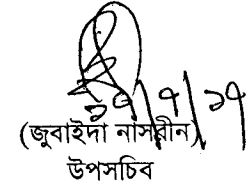 ১০/৭/১৭
(জুবাইদা নাসরীন)
উপসচিব